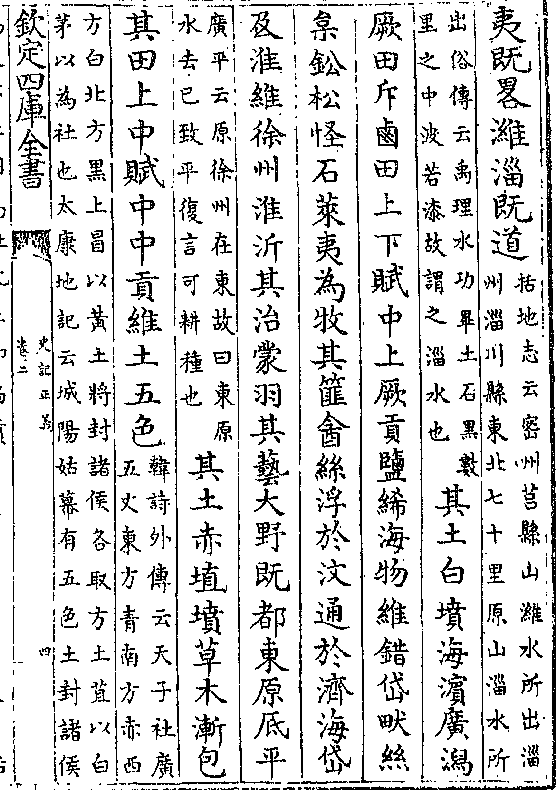 夷既畧濰淄既道括地志云密州莒縣山濰水所出淄州淄川縣東北七十里原山淄水所
出俗傳云禹理水功畢土石黒數里之中波若漆故謂之淄水也其土白墳海濵廣潟
厥田斥鹵田上下賦中上厥貢鹽絺海物維錯岱畎絲
枲鈆松怪石萊夷為牧其篚酓絲浮於汶通於濟海岱
及淮維徐州淮沂其治蒙羽其藝大野既都東原底平
廣平云原徐州在東故曰東原水去已致平復言可耕種也其土赤埴墳草木漸包
其田上中賦中中貢維土五色韓詩外傳云天子社廣五丈東方青南方赤西
方白北方黒上冒以黄土將封諸侯各取方土苴以白茅以為社也太康地記云城陽姑幕有五色土封諸侯
欽定四庫全書
史記正義
卷二
四